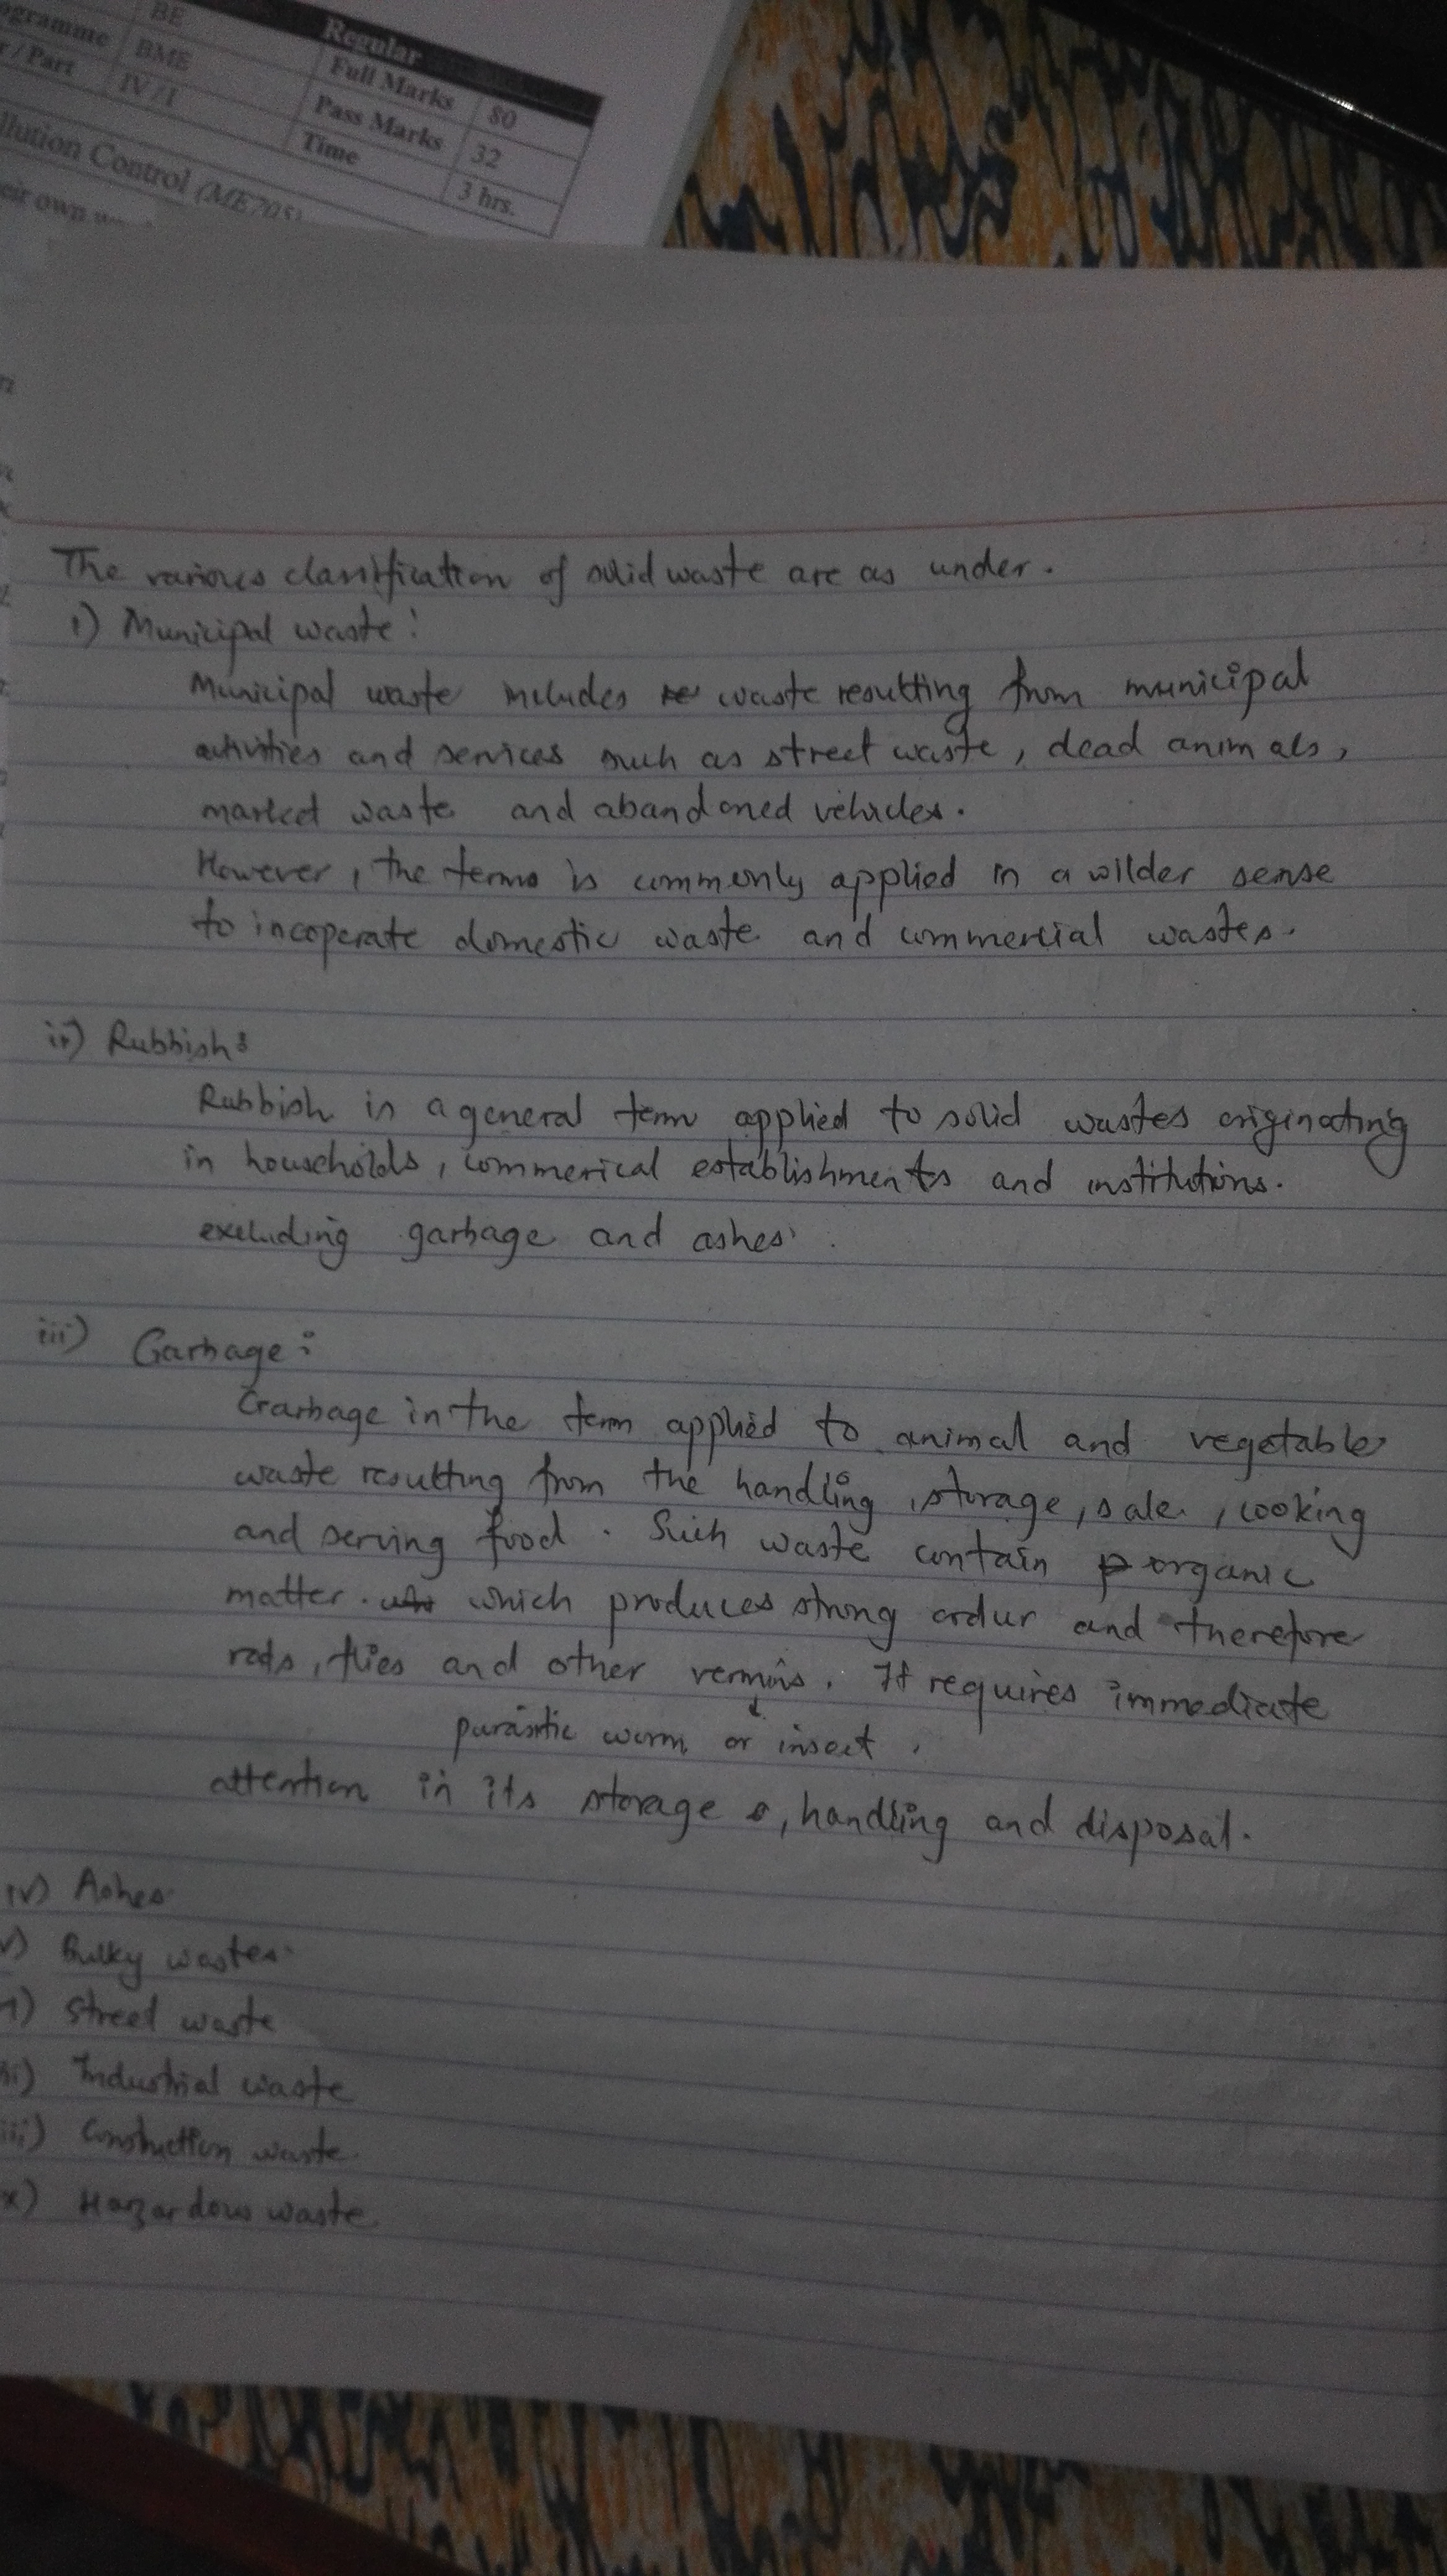 ogramme BE Regular
r / Part BME Full Marks 80
IV / I Pass Marks 32
Time 3 hrs.
llution Control (ME705)
eir own
The various classification of solid waste are as under.
i) Municipal waste:
Municipal waste includes waste resulting from municipal
activities and services such as street waste, dead animals,
market waste and abandoned vehicles.
However, the terms is commonly applied in a wilder sense
to incoperate domestic waste and commercial wastes.
ii) Rubbish:
Rubbish is a general term applied to solid wastes originating
in households, commerical establishments and institutions.
excluding garbage and ashes.
iii) Garbage:
Garbage in the term applied to animal and vegetable
waste resulting from the handling, storage, sale, cooking
and serving food. Such waste contain organic
matter. which produces strong ordur and therefore
rats, flies and other vermins. It requires immediate
parasitic worm or insect.
attention in its storage, handling and disposal.
iv) Ashes
v) Bulky wastes
vi) Street waste
vii) Industrial waste
viii) Construction waste
ix) Hazardous waste